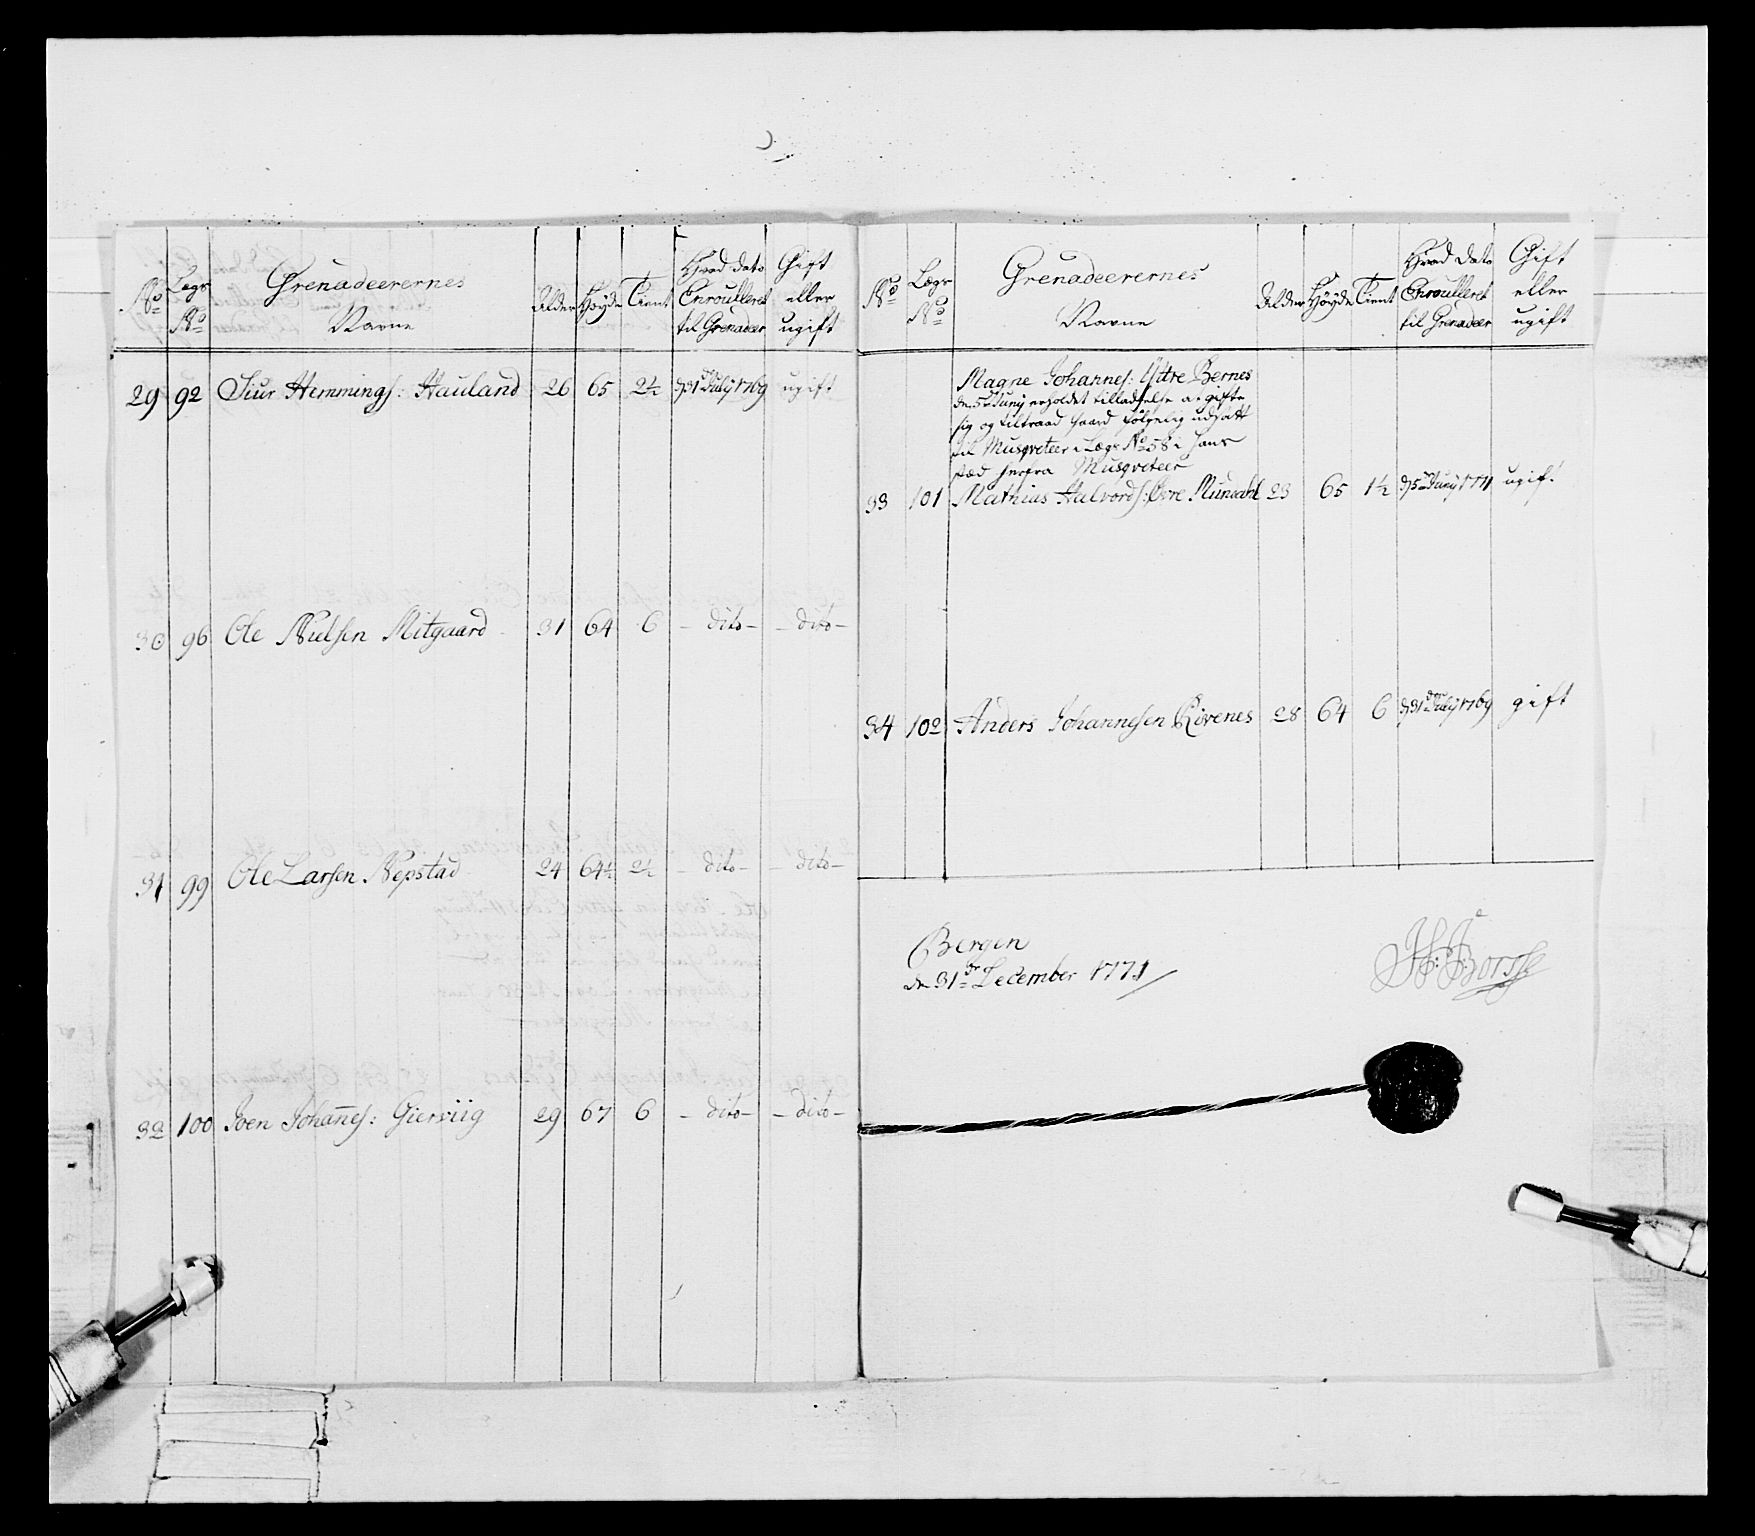 No Lægs No Grenadeerernes Navne Alder Høyde Tient Hvad dato Enroulleret til Grenadeer Gift eller ugift
29 92 Siur Hemmings: Hauland 26 65 2½ d 31 July 1769 ugift
30 96 Ole Nielsen Mitgaard 31 64 6 – dito – – dito –
31 99 Ole Larsen Nepstad 24 64½ 2½ – dito – – dito –
32 100 Joen Johañes: Gierviig 29 67 6 – dito – – dito –
No Lægs No Grenadeerernes Navne Alder Høyde Tient Hvad dato Enroulleret til Grenadeer Gift eller ugift
Magne Johannes: Yttre Bernes
den 5 Juny erholdet tilladelse at gifte
sig og tiltraad Gaard følgelig udsatt
til Musqveteer i Lægs No 58 i hans
stæd herfra Musqveteer
33 101 Mathias Halvords: Øvre Mundahl 23 65 1½ d 5 Juny 1771 ugift
34 102 Anders Johannesen Rivenes 28 64 6 d 31 July 1769 gift
Bergen
den 31 December 1771